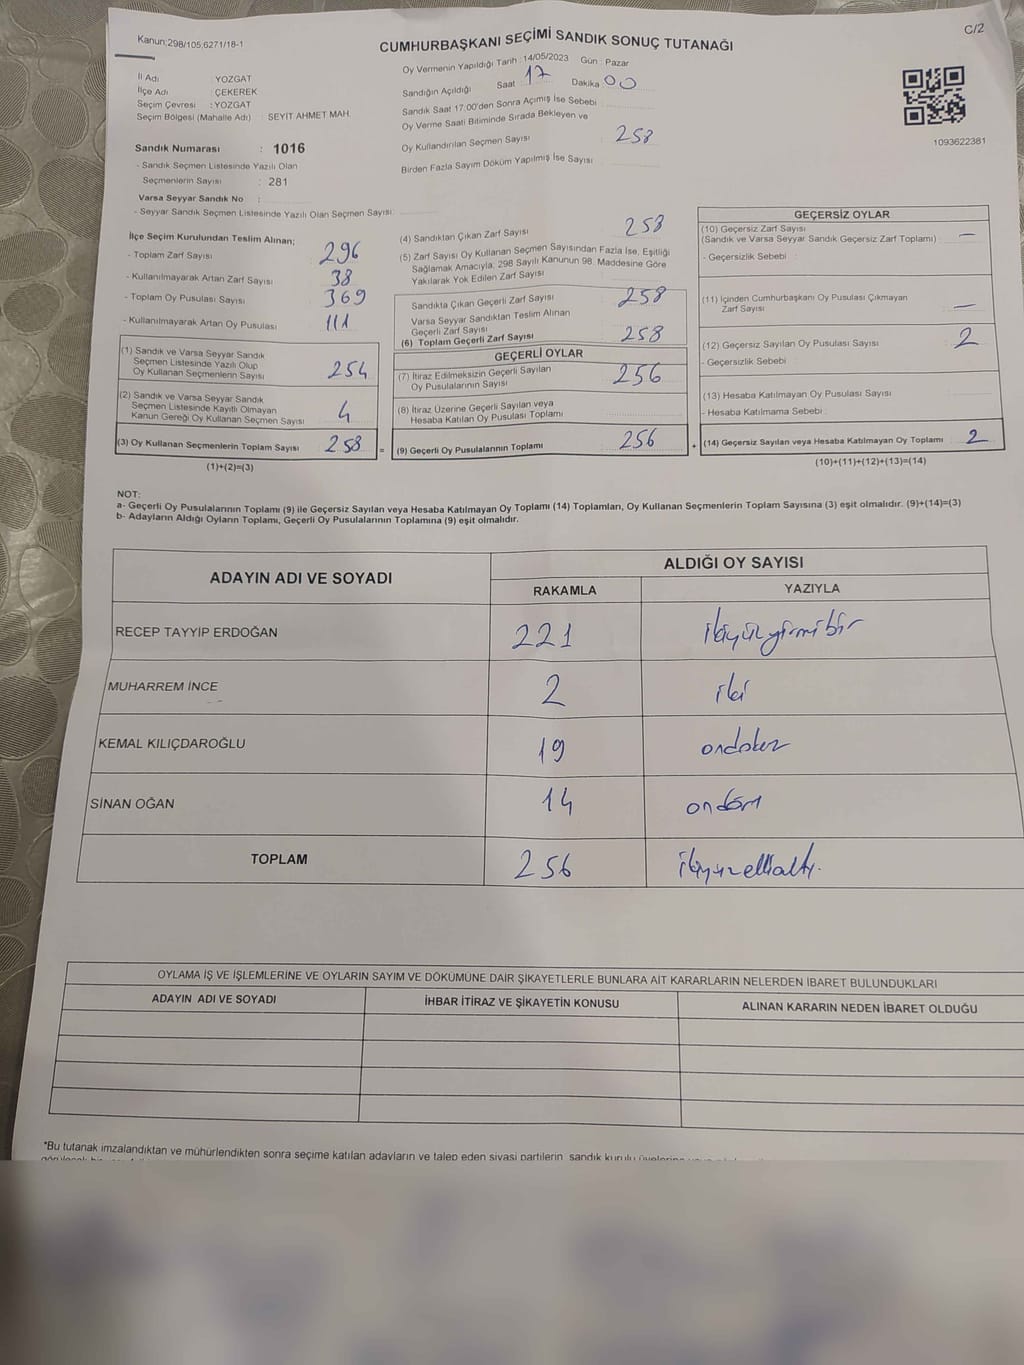 Kanun:298/105,6271/18-1
C/2
CUMHURBAŞKANI SEÇİMİ SANDIK SONUÇ TUTANAĞI
İl Adı : YOZGAT
İlçe Adı : ÇEKEREK
Seçim Çevresi : YOZGAT
Seçim Bölgesi (Mahalle Adı) : SEYİT AHMET MAH.
Sandık Numarası : 1016
- Sandık Seçmen Listesinde Yazılı Olan
Seçmenlerin Sayısı : 281
Varsa Seyyar Sandık No :
- Seyyar Sandık Seçmen Listesinde Yazılı Olan Seçmen Sayısı:
Oy Vermenin Yapıldığı Tarih :14/05/2023 Gün : Pazar
Sandığın Açıldığı Saat 17 Dakika 00
Sandık Saat 17:00'den Sonra Açımış İse Sebebi
Oy Verme Saati Bitiminde Sırada Bekleyen ve
Oy Kullandırılan Seçmen Sayısı : 258
Birden Fazla Sayım Döküm Yapılmış İse Sayısı
1093622381
İlçe Seçim Kurulundan Teslim Alınan;
- Toplam Zarf Sayısı 296
- Kullanılmayarak Artan Zarf Sayısı 38
- Toplam Oy Pusulası Sayısı 369
- Kullanılmayarak Artan Oy Pusulası 111
(1) Sandık ve Varsa Seyyar Sandık
Seçmen Listesinde Yazılı Olup
Oy Kullanan Seçmenlerin Sayısı 254
(2) Sandık ve Varsa Seyyar Sandık
Seçmen Listesinde Kayıtlı Olmayan
Kanun Gereği Oy Kullanan Seçmen Sayısı 4
(3) Oy Kullanan Seçmenlerin Toplam Sayısı 258 =
(1)+(2)=(3)
(4) Sandıktan Çıkan Zarf Sayısı 258
(5) Zarf Sayısı Oy Kullanan Seçmen Sayısından Fazla İse, Eşitliği
Sağlamak Amacıyla, 298 Sayılı Kanunun 98. Maddesine Göre
Yakılarak Yok Edilen Zarf Sayısı
Sandıkta Çıkan Geçerli Zarf Sayısı 258
Varsa Seyyar Sandıktan Teslim Alınan
Geçerli Zarf Sayısı
(6) Toplam Geçerli Zarf Sayısı 258
GEÇERLİ OYLAR
(7) İtiraz Edilmeksizin Geçerli Sayılan
Oy Pusulalarının Sayısı 256
(8) İtiraz Üzerine Geçerli Sayılan veya
Hesaba Katılan Oy Pusulası Toplamı
(9) Geçerli Oy Pusulalarının Toplamı 256 +
GEÇERSİZ OYLAR
(10) Geçersiz Zarf Sayısı
(Sandık ve Varsa Seyyar Sandık Geçersiz Zarf Toplamı) : —
- Geçersizlik Sebebi :
(11) İçinden Cumhurbaşkanı Oy Pusulası Çıkmayan
Zarf Sayısı —
(12) Geçersiz Sayılan Oy Pusulası Sayısı 2
- Geçersizlik Sebebi :
(13) Hesaba Katılmayan Oy Pusulası Sayısı
- Hesaba Katılmama Sebebi :
(14) Geçersiz Sayılan veya Hesaba Katılmayan Oy Toplamı 2
(10)+(11)+(12)+(13)=(14)
NOT:
a- Geçerli Oy Pusulalarının Toplamı (9) ile Geçersiz Sayılan veya Hesaba Katılmayan Oy Toplamı (14) Toplamları, Oy Kullanan Seçmenlerin Toplam Sayısına (3) eşit olmalıdır. (9)+(14)=(3)
b- Adayların Aldığı Oyların Toplamı, Geçerli Oy Pusulalarının Toplamına (9) eşit olmalıdır.
ADAYIN ADI VE SOYADI
ALDIĞI OY SAYISI
RAKAMLA YAZIYLA
RECEP TAYYİP ERDOĞAN 221 ikiyüzyirmibir
MUHARREM İNCE 2 iki
KEMAL KILIÇDAROĞLU 19 ondokuz
SİNAN OĞAN 14 ondört
TOPLAM 256 ikiyüzellialtı.
OYLAMA İŞ VE İŞLEMLERİNE VE OYLARIN SAYIM VE DÖKÜMÜNE DAİR ŞİKAYETLERLE BUNLARA AİT KARARLARIN NELERDEN İBARET BULUNDUKLARI
ADAYIN ADI VE SOYADI İHBAR İTİRAZ VE ŞİKAYETİN KONUSU ALINAN KARARIN NEDEN İBARET OLDUĞU
*Bu tutanak imzalandıktan ve mühürlendikten sonra seçime katılan adayların ve talep eden siyasi partilerin sandık kurulu üyelerine